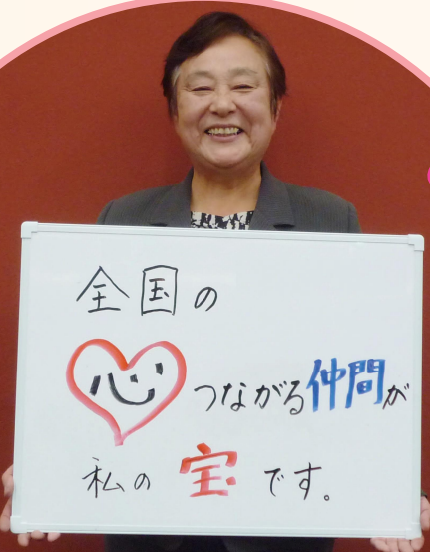 全国の
心つながる仲間が
私の宝です。